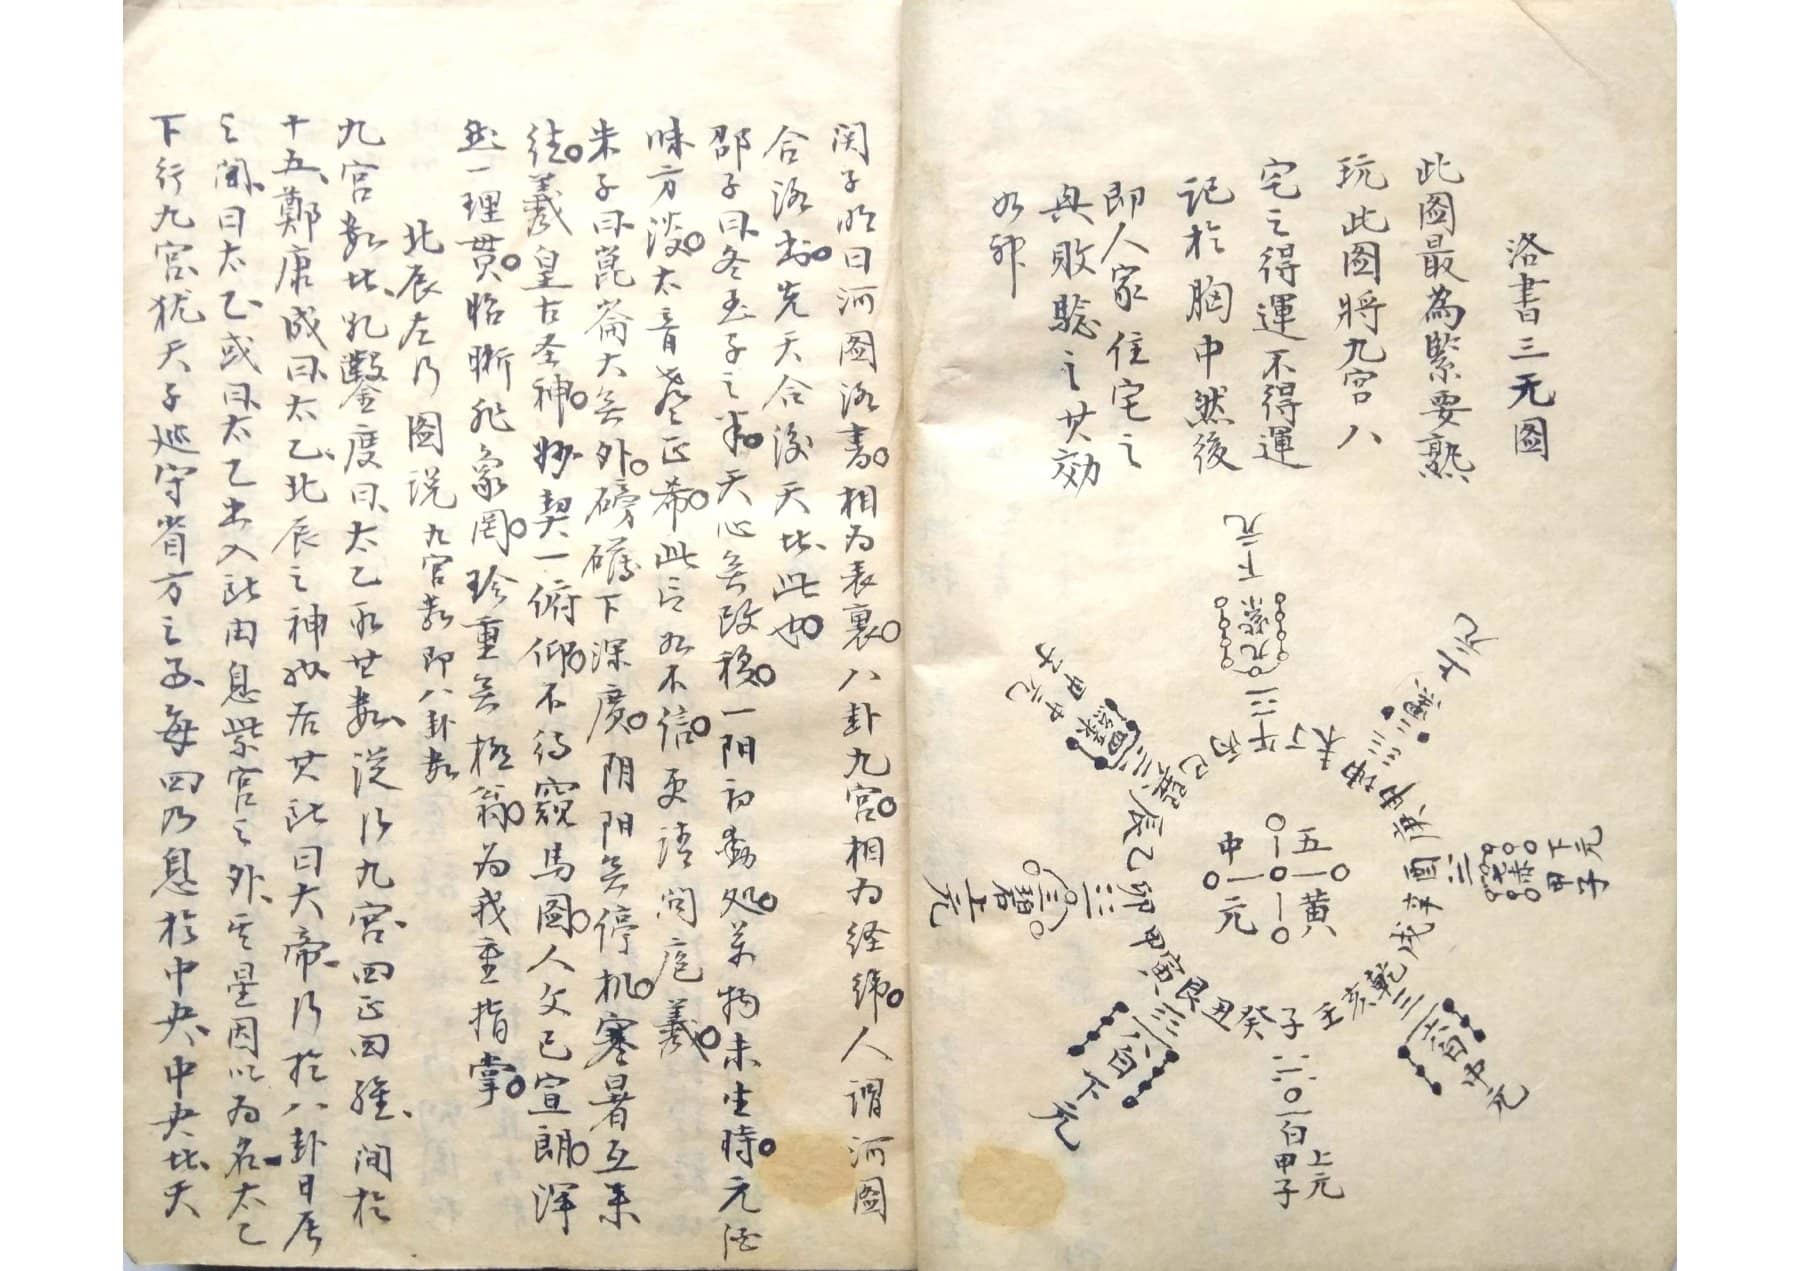 洛書三元图
此图最為緊要熟
玩此图將九宮八
宅之得運不得運
記於胸中然後
即人家住宅之
興敗驗之其効
如神
九紫
下元
二黑
上元
下元
甲子
六白中元
一白甲子
上元
八白下元
三碧
上元
四綠
中元
甲子
五黄
中元
丙午丁未坤申庚酉辛戌乾亥壬子癸丑艮寅甲卯乙辰巽巳
関子明曰河图洛書相为表裏八卦九宮相为经纬人谓河图
合洛书先天合後天此也
邵子曰冬至子之半天心無改移一阳初動処萬物未生時元酒
味方淡太音聲正希此言如不信更語問庖羲
朱子曰崑崙大無外磅礴下深廣阴阳無停机寒暑互来
往羲皇古圣神妙契一俯仰不待窺馬圖人文已宣朗渾
然一理贯昭晰非象罔珍重無極翁为我重指掌
北辰左行图说 九宮數即八卦數
九宮數 乾鑿度曰太乙取其數從行九宮四正四維间於
十五鄭康成曰太乙北辰之神也居其所曰大帝行於八卦日辰
之間曰太乙或曰太乙出入所由息紫宮之外其星因以为名太乙
下行九宮犹天子巡守省方之每四乃息於中央中央